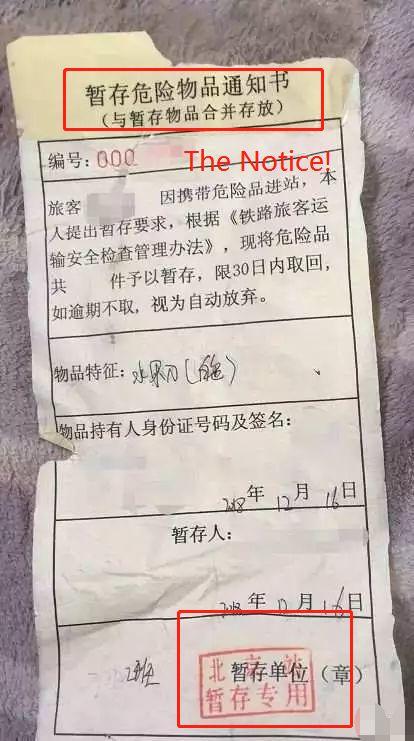 暂存危险物品通知书
（与暂存物品合并存放）
编号：000
The Notice!
旅客 因携带危险品进站，本
人提出暂存要求，根据《铁路旅客运
输安全检查管理办法》，现将危险品
共 件予以暂存，限30日内取回，
如逾期不取，视为自动放弃。
物品特征：水果刀（白色）
物品持有人身份证号码及签名：
2018年12月16日
暂存人：
2018年12月16日
班 暂存单位（章）
北京站
暂存专用